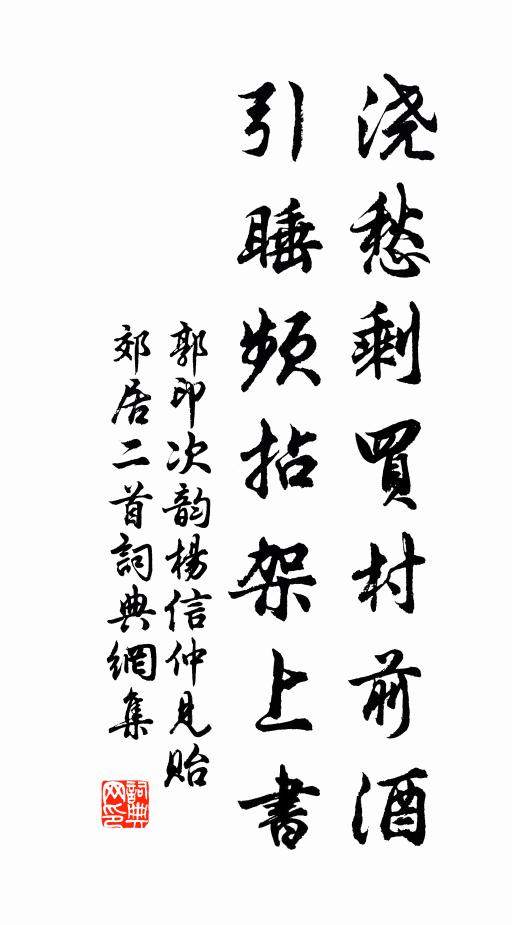 浇愁剩買村前酒
引睡频拈架上書
郭印次韵楊信仲見貽
郊居二首詞典網集
詞典
网印